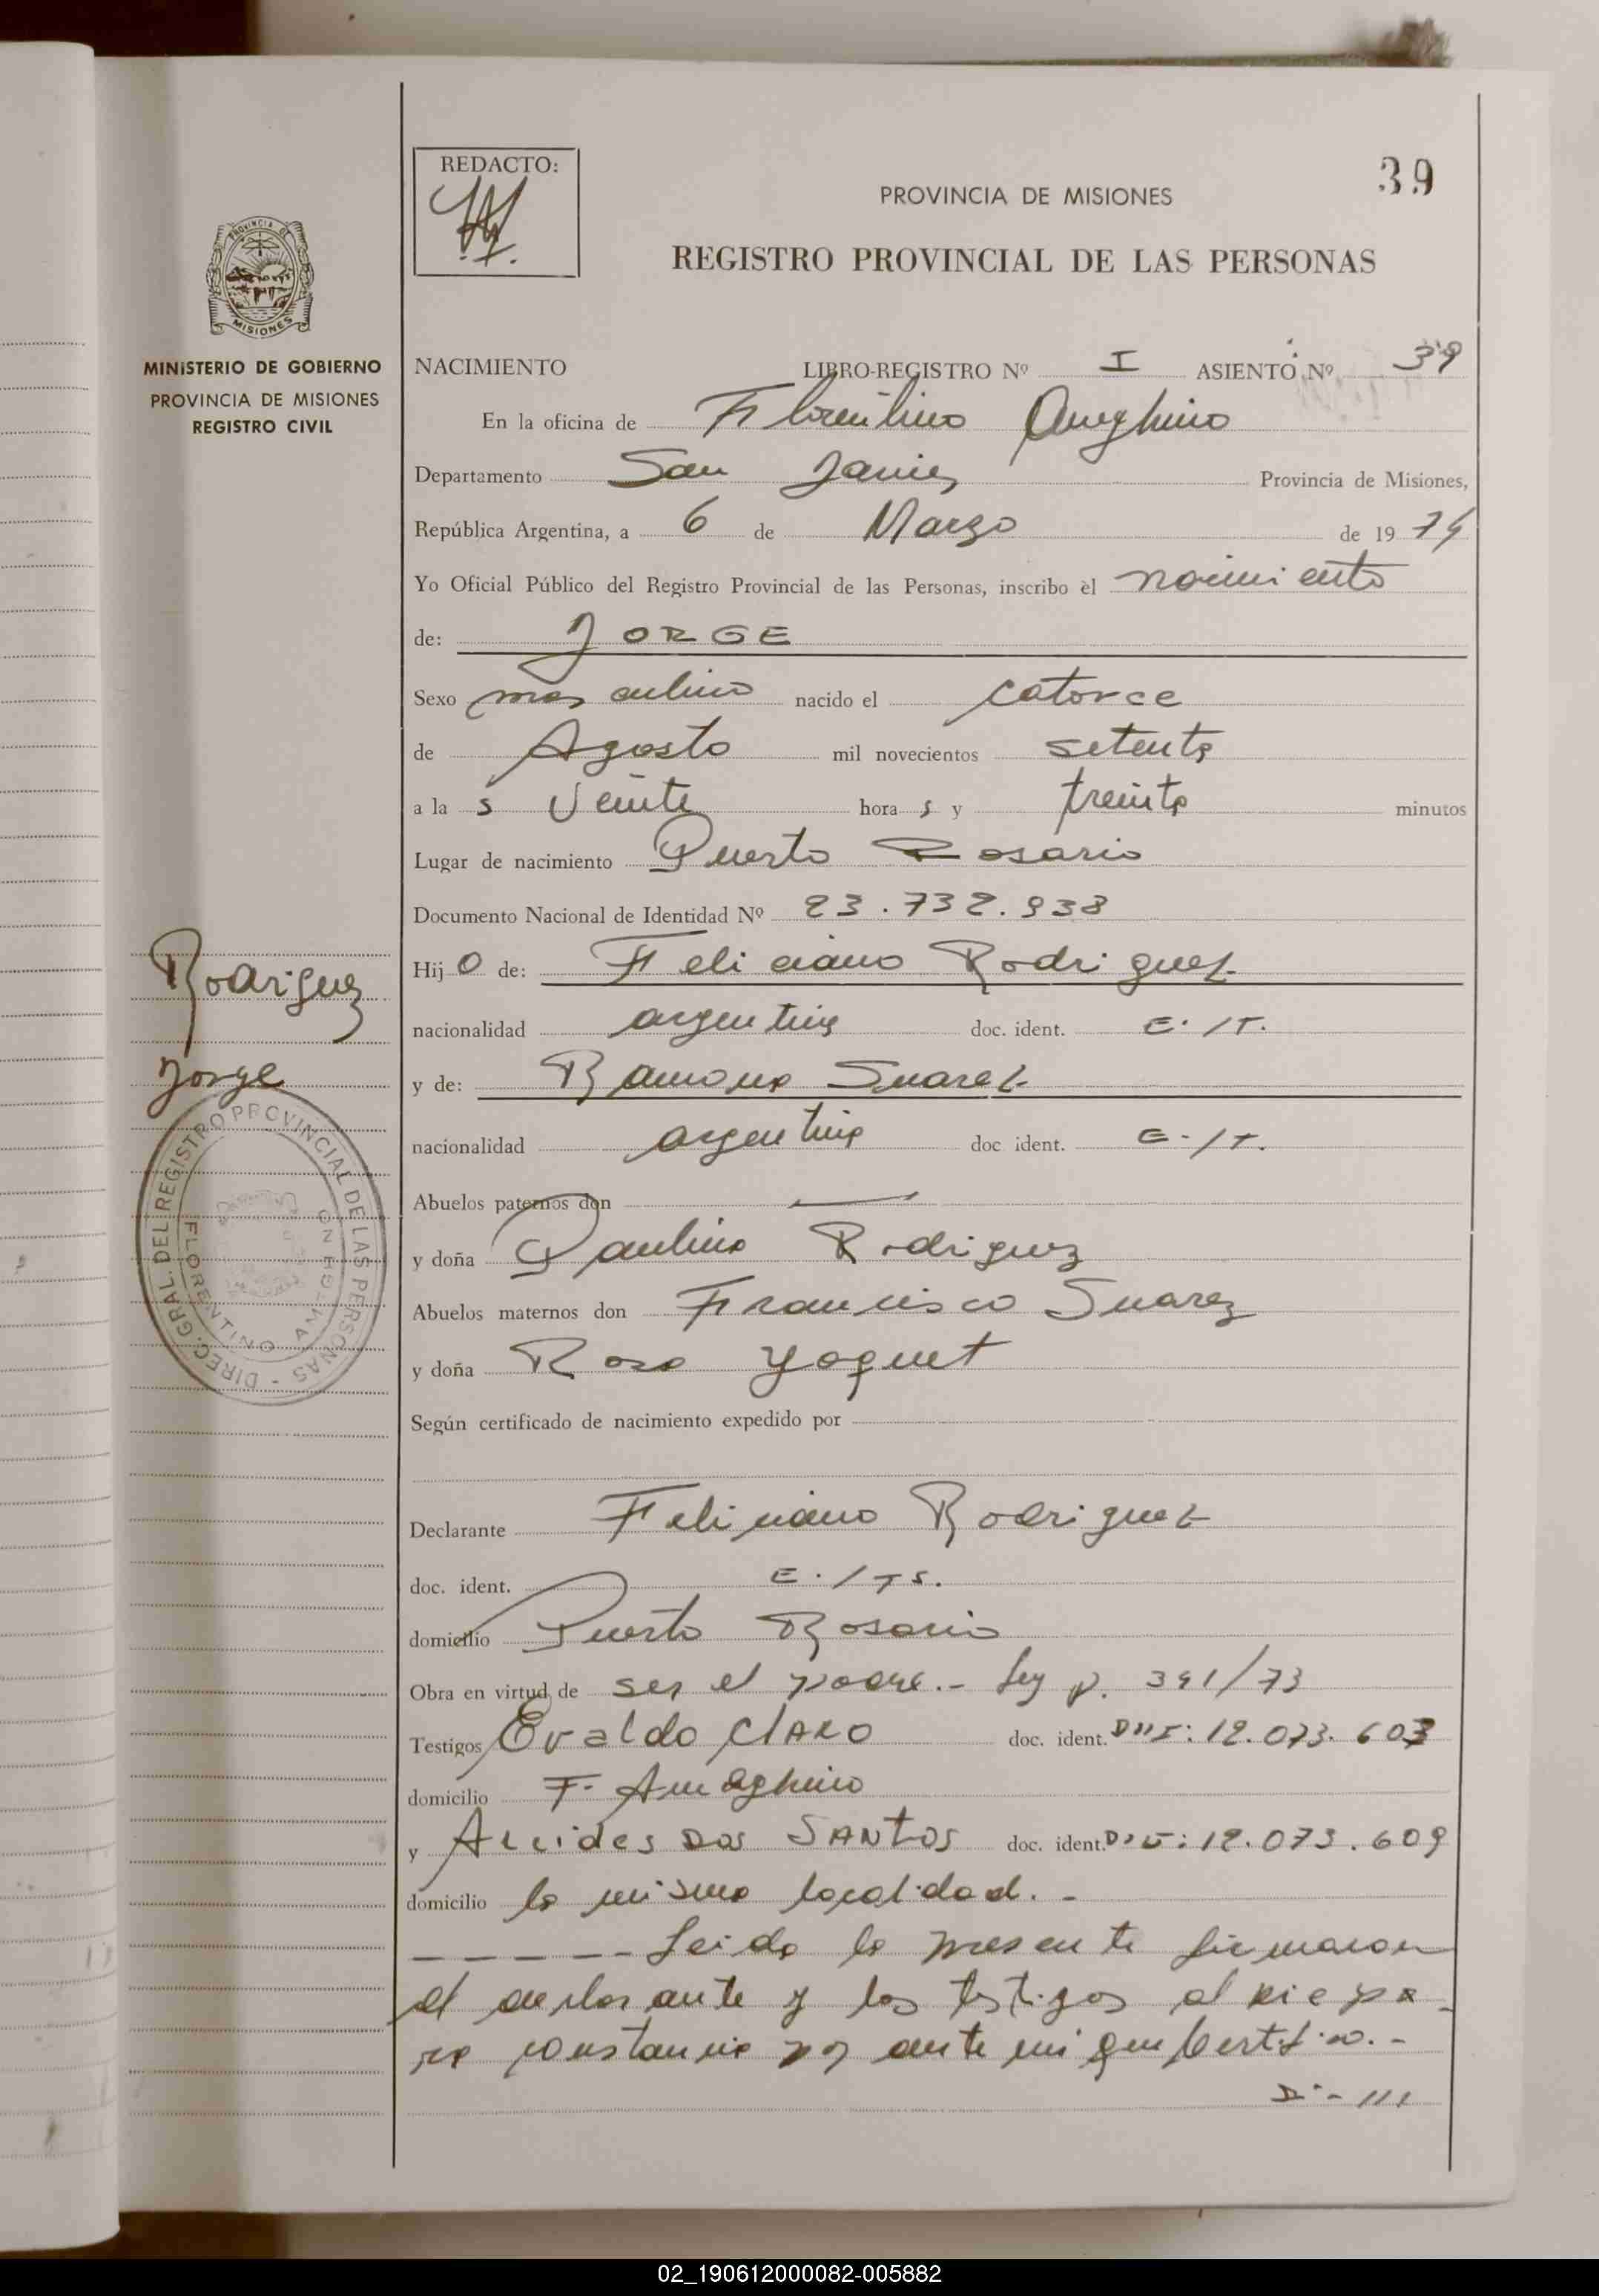 39
REDACTO:
PROVINCIA DE MISIONES
REGISTRO PROVINCIAL DE LAS PERSONAS
PROVINCIA DE
MISIONES
MINISTERIO DE GOBIERNO
PROVINCIA DE MISIONES
REGISTRO CIVIL
NACIMIENTO LIBRO-REGISTRO Nº I ASIENTO Nº 39
En la oficina de Florentino Ameghino
Departamento San Javier Provincia de Misiones,
República Argentina, a 6 de Marzo de 1974
Yo Oficial Público del Registro Provincial de las Personas, inscribo el nacimiento
de: JORGE
Sexo masculino nacido el catorce
de Agosto mil novecientos setenta
a las veinte horas y treinta minutos
Lugar de nacimiento Puerto Rosario
Documento Nacional de Identidad Nº 23.732.938
Hijo de: Feliciano Rodriguez
nacionalidad argentina doc. ident. E./T.
y de: Ramona Suarez
nacionalidad argentina doc ident. E-/T.
Abuelos paternos don —
y doña Paulina Rodriguez
Abuelos maternos don Francisco Suarez
y doña Rosa Yaquet
Según certificado de nacimiento expedido por
Declarante Feliciano Rodriguez
doc. ident. E./TS.
domicilio Puerto Rosario
Obra en virtud de ser el padre.- Ley p. 391/73
Testigos Evaldo CLARO doc. ident. DNI: 12.073.603
domicilio F. Ameghino
y Alcides Dos SANTOS doc. ident. DNI: 12.073.609
domicilio la misma localidad.-
------ Leida la presente firmaron
el declarante y los testigos al pie pa-
ra constancia por ante mi que Certifico.-
D.- ///
Rodriguez
Jorge
DIREC. GRAL. DEL REGISTRO PROVINCIAL DE LAS PERSONAS -
FLORENTINO AMEGHINO
02_190612000082-005882